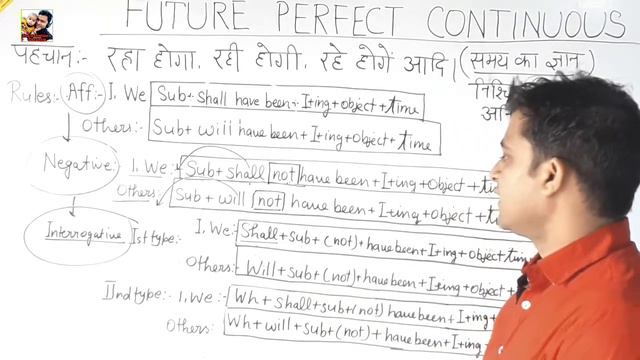 FUTURE PERFECT CONTINUOUS
पहचान:- रहा होगा, रही होगी, रहे होगें आदि। (समय का ज्ञान)
Rules:- Aff:- I. We Sub+ shall have been+ I+ing+object+time
Others:- Sub+ will have been+ I+ing+object+time
Negative:- I. We:- Sub+ shall not have been+I+ing+object+
Others:- Sub + will not have been+I+ing+object+
Interrogative Ist type:- I. We:- Shall+sub+(not)+have been+I+ing+object time
Others:- Will+sub+(not)+have been+I+ing+object+
IInd type:- I. We:- Wh + shall+sub+(not) have been+I+ing+
Others: Wh+ will +sub+(not)+ have been+I+ing+